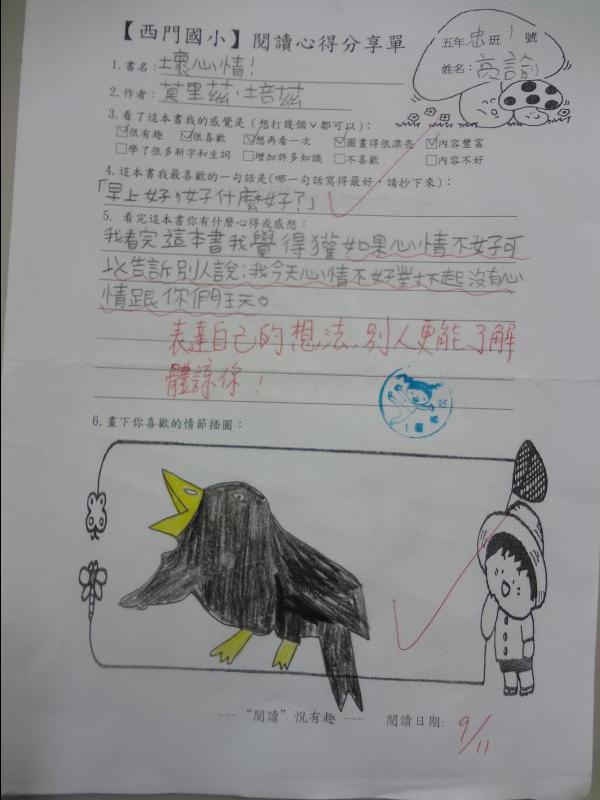 【西門國小】閱讀心得分享單
五年忠班1號
姓名：高諭
1.書名：壞心情！
2.作者：莫里茲．培茲
3.看了這本書我的感覺是（想打幾個∨都可以）：
☑很有趣 ☑很喜歡 ☑想再看一次 ☑圖畫得很漂亮 ☑內容豐富
□學了很多新字和生詞 □增加許多知識 □不喜歡 □內容不好
4.這本書我最喜歡的一句話是(哪一句話寫得最好，請抄下來)：
「早上好，好什麼好了」
5. 看完這本書你有什麼心得或感想：
我看完這本書我覺得獾如果心情不好可
以告訴別人說：我今天心情不好對不起沒有心
情跟你們玩。
表達自己的想法，別人更能了解
體諒你！
6.畫下你喜歡的情節插圖：
~~~ “閱讀”悅有趣 ~~~ 閱讀日期: 9/11